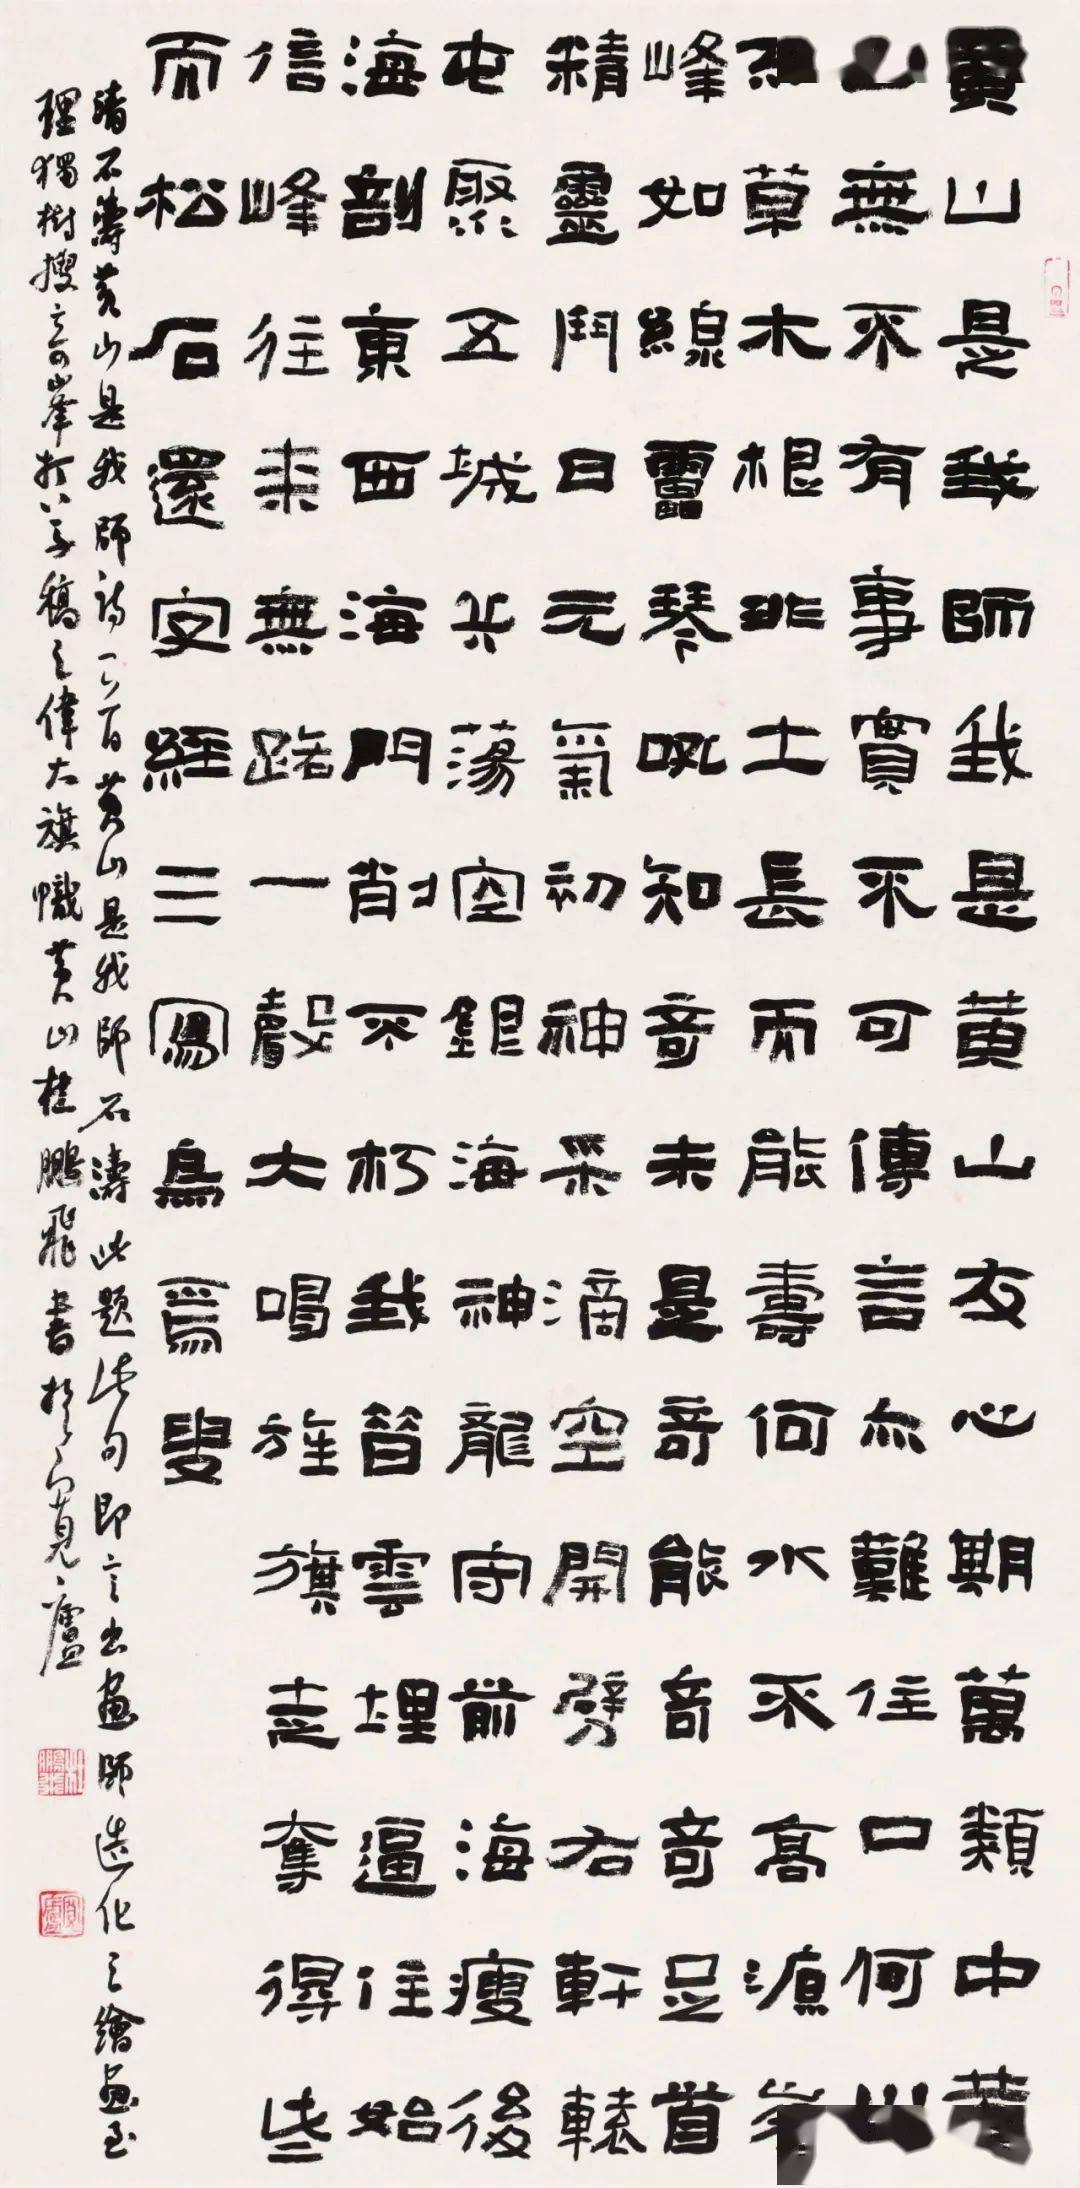 黃山是我師我是黃山友心期萬類中黃
山無不有事實不可傳言亦難住口何山
草木根非土長而能壽何水不高源峯
峰如線靁琴吼知奇未是奇能奇奇足首
精靈鬥日元氣初神采滴空開劈右軒轅
屯聚五城兵蕩空銀海神龍守前海瘦後
海剖東西海門削不朽我昔雲埋逼住始
信峰往來無路一聲大喝旌旗走奪得些
而松石還字經三寫烏焉叟
清石濤黃山是我師詩一首黃山是我師石濤此題此句即言出畫師造化之繪畫至
理獨樹搜奇峯打草稿之偉大旗幟黃山杜鵬飛書於寬廬